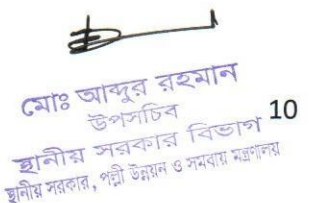 মোঃ আব্দুর রহমান
উপসচিব
স্থানীয় সরকার বিভাগ 10
স্থানীয় সরকার, পল্লী উন্নয়ন ও সমবায় মন্ত্রণালয়